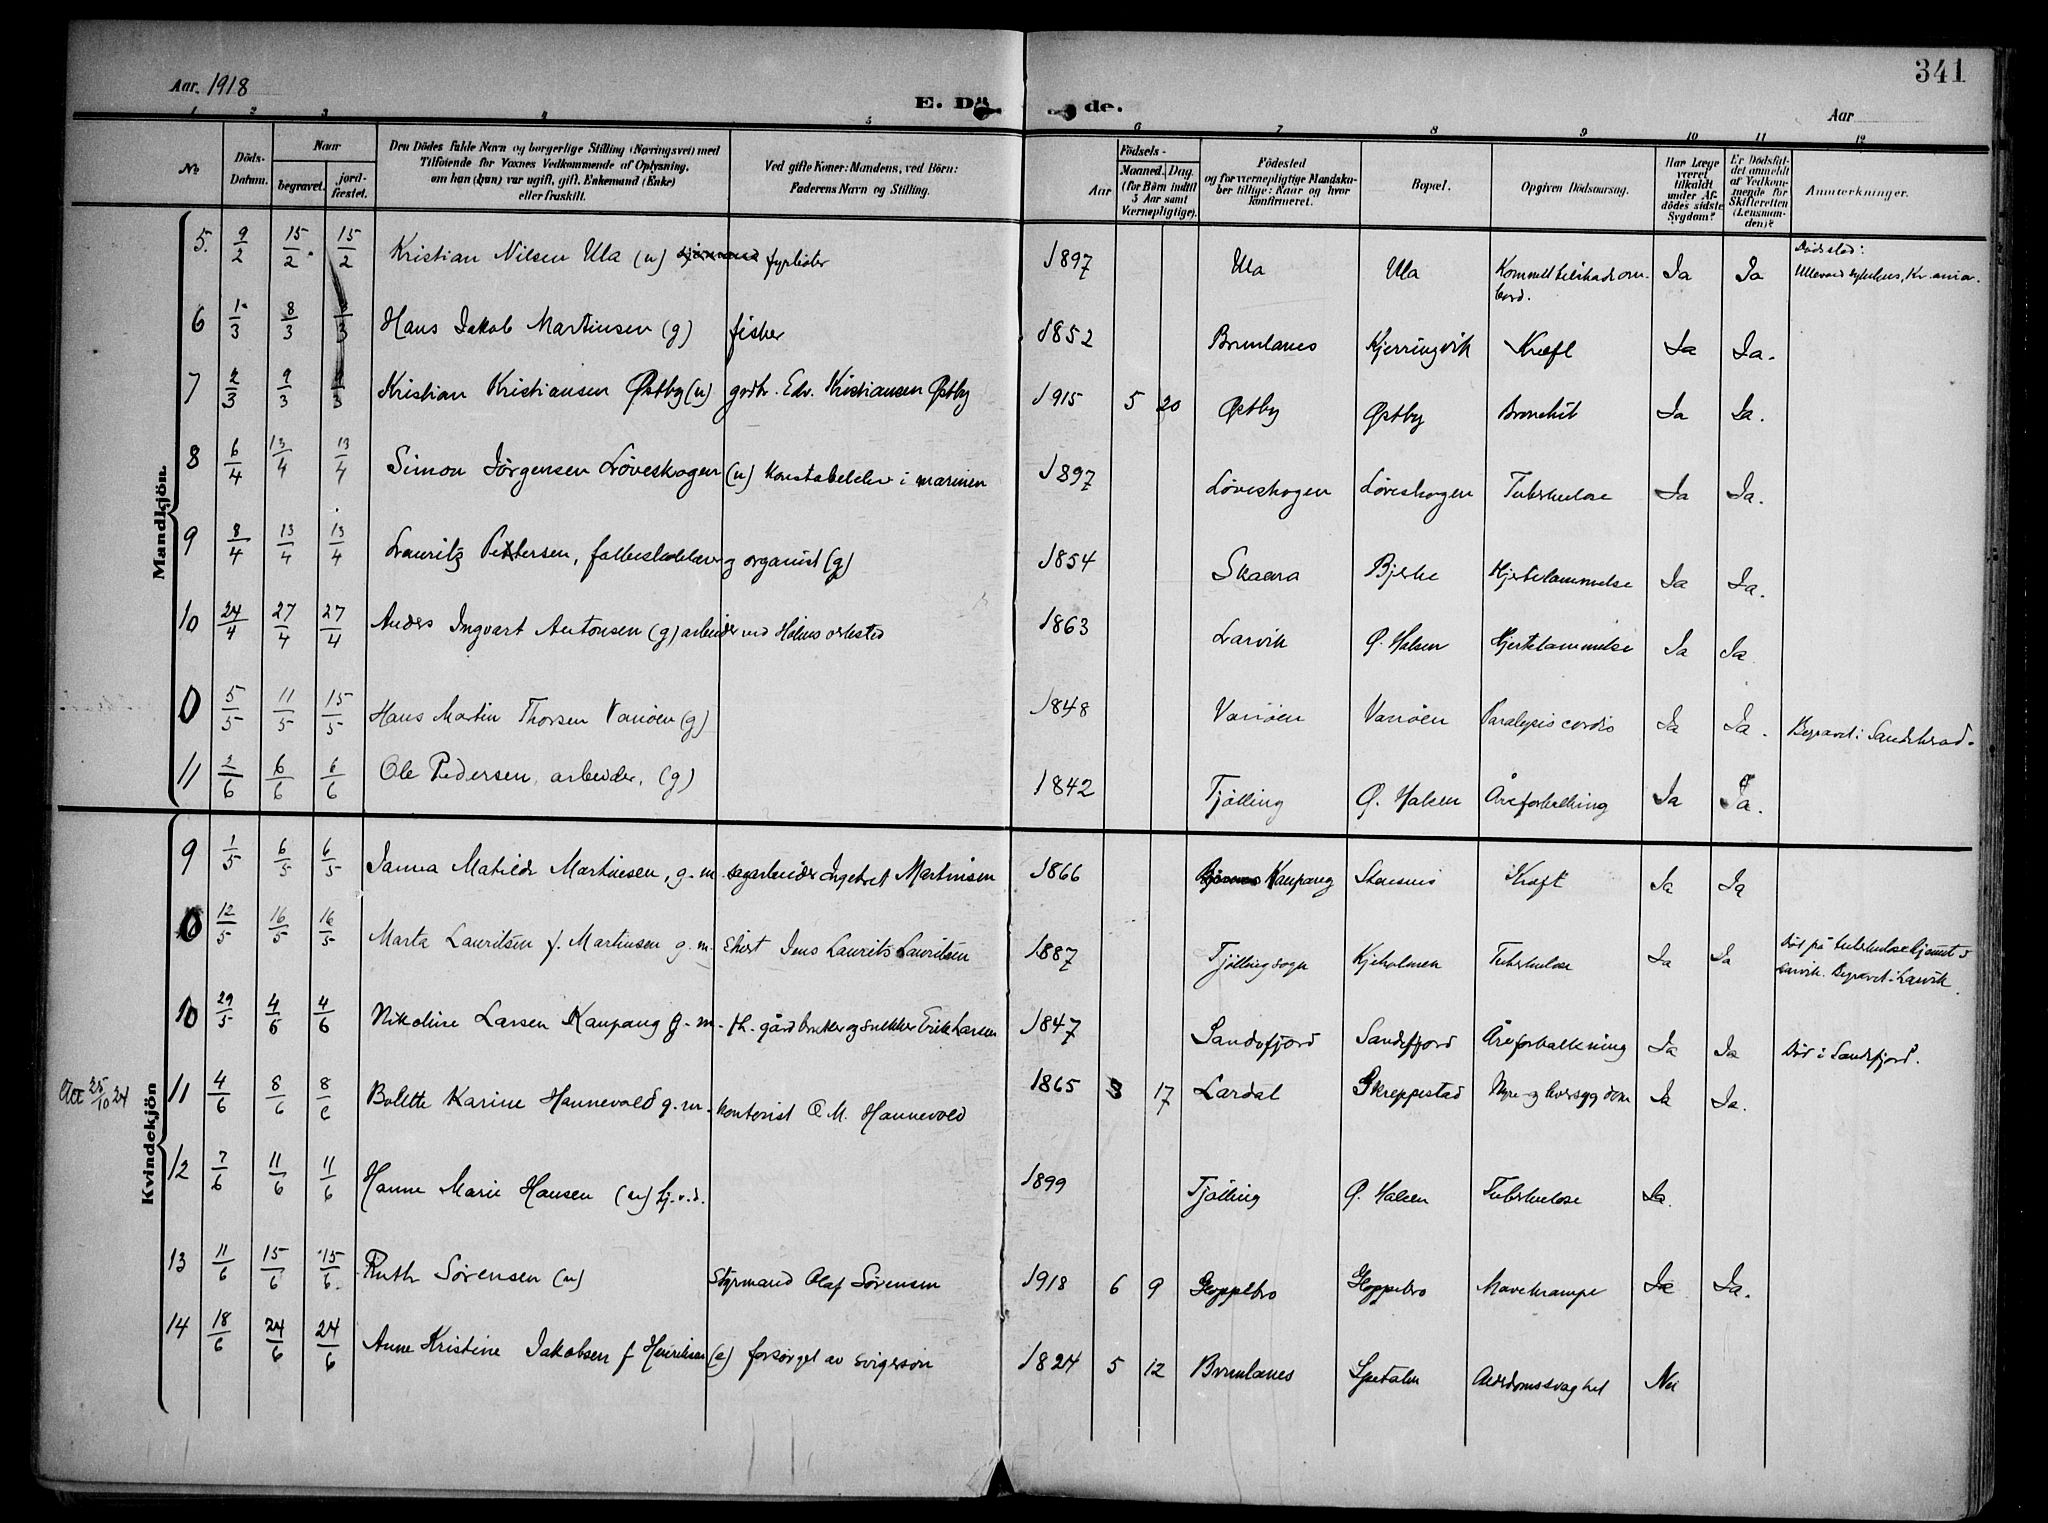 341
Aar 1918
E. Dö de.
Aar
1 2 3 4 5 6 7 8 9 10 11 12
No
Döds-Datum.
Naar
begravet.
jord-fæstet.
Den Dödes fulde Navn og borgerlige Stilling (Næringsvei) med
Tilföiende for Voxnes Vedkommende af Oplysning,
om han (hun) var ugift, gift, Enkemand (Enke)
eller fraskilt.
Ved gifte Koner: Mandens, ved Börn:
Faderens Navn og Stilling.
Aar
Födsels-
Maaned. Dag.
(for Börn indtil
3 Aar samt
Værnepligtige).
Födested
og for værnepligtige Mandska-
ber tillige: Aar og hvor
konfirmeret.
Bopæl.
Opgiven Dödsaarsag.
Har Læge
været
tilkaldt
under Af-
dödes sidste
Sygdom?
Er Dödsfal-
det anmeldt
af Vedkom-
mende for
Skifteretten
(Lensman-
den)?
Anmærkninger.
Mandkjön.
5. 9/2 15/2 15/2 Kristian Nilsen Ula (u) sjömand fyrböter 1897 Ula Ula Ja Ja Dödssted:
Ullevaal sykehus, Kr.ania.
6 1/3 8/3 8/3 Hans Jakob Martinsen (g) fisker 1852 Brunlanes Kjerringvik Kreft Ja Ja.
7 2/3 9/3 9/3 Kristian Kristiansen Østby (u) gårdbr. Edv. Kristiansen Østby 1915 5 20 Østby Østby Bronchit Ja Ja.
8 6/4 13/4 13/4 Simon Jörgensen Löveskogen (u) konstabelelev i marinen 1897 Löveskogen Löveskogen Tuberkulose Ja Ja.
9 8/4 13/4 13/4 Lauritz Pettersen, folkeskolelærer og organist (g) 1854 Skaara Bjerke Hjertelammelse Ja Ja.
10 24/4 27/4 27/4 Anders Ingvart Antonsen (g) arbeider ved Holms verksted 1863 Larvik Ø. Halsen Hjertelammelse Ja Ja
0 5/5 11/5 15/5 Hans Martin Thorsen Variöen (g) 1848 Variöen Variöen Paralysis cordis Ja Ja. Begravet i Sandeherad.
11 2/6 6/6 6/6 Ole Pedersen, arbeider, (g) 1842 Tjölling Ø. Halsen Åreforkalkning Ja Ja.
Kvindekjön
9 1/5 6/5 6/5 Janna Matilde Martinsen, g. m. sagarbeider Ingebret Martinsen 1866 Kaupang Kreft Ja Ja
0 12/5 16/5 16/5 Marta Lauritsen f. Martinsen g. m. Jens Laurits Lauritsen 1887 Tjöllingsogn Kjeholmen Tuberkulose Ja Ja Död på tuberkulosehjemmet i
Larvik. Begravet i Larvik.
10 29/5 4/6 4/6 Nikoline Larsen Kaupang g. m. fh. gårdbruker og snekker Erik Larsen 1847 Sandefjord Sandefjord Åreforkalkning Ja Ja Död i Sandefjord.
Att 25/10 24
11 4/6 8/6 8/6 Bolette Karine Hannevold g. m. kontorist O. M. Hannevold 1865 3 17 Lardal Skreppestad Nyre- og leversygdom Ja Ja.
12 7/6 11/6 11/6 Hanne Marie Hansen (u) hj. v. d. 1899 Tjölling Ø. Halsen Tuberkulose Ja.
13 11/6 15/6 15/6. Ruth Sörensen (u) Styrmand Olaf Sörensen 1918 6 9 Gloppebro Gloppebro Mavekrampe Ja Ja.
14 18/6 24/6 24/6 Anne Kristine Jakobsen f Henriksen (e) forsörget av svigersön 1824 5 12 Brunlanes Spetalen Alderdomssvaghet Nei